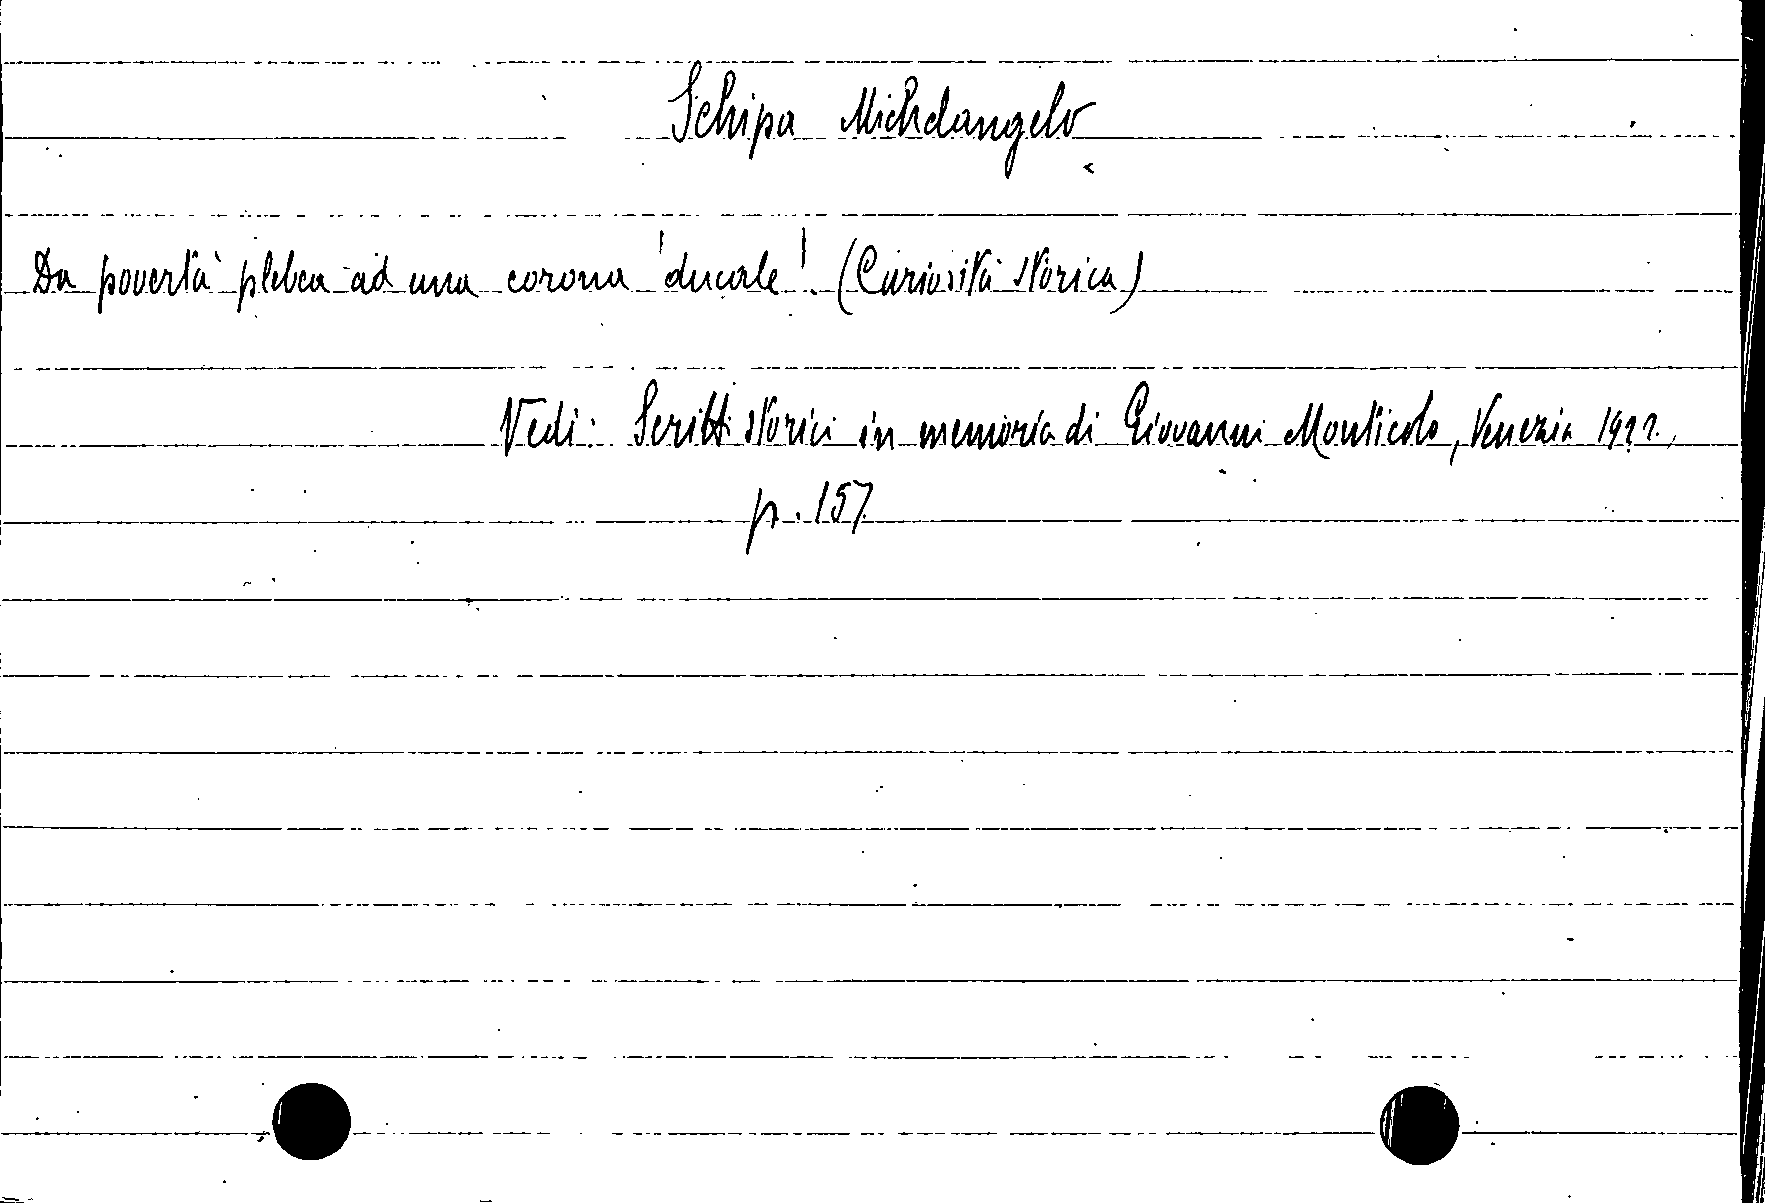 Schipa Michelangelo
Da povertà plebea ad una corona 'ducale'. (Curiosità storica)
Vedi: Scritti storici in memoria di Giovanni Monticolo, Venezia 1922.,
p. 157